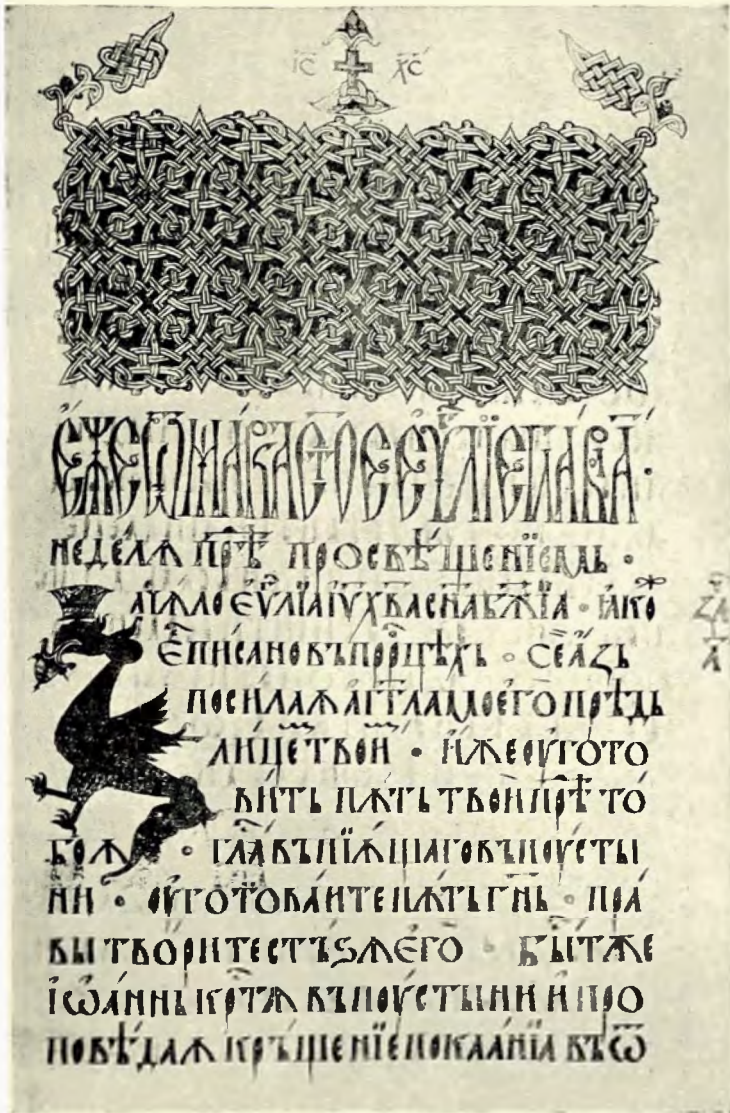 ІС ХС
ЄЖЕ Ѿ МАРКА СТОЕ ЕѴ҃ЛІЕ ГЛАВА҃ ·
недѣлѧ прѣⷣ просвѣщенїемь ·
ачѧло єѵ҃лїа іѵ҃ х҃ва сн҃а бж҃їа · ꙗкоⷤ
єⷭ писано въ прⷪр҃цѣхь · се азь
посилаѫ агг҃ла моего прѣдь
лице твои · иже оугото
вить пѫть твои прѣⷣ то
боѫ · глаⷭ҇ въпїѫщаго въ поусты
ни · оуготоваите пѫть гн҃ь · пра
вы творите стьѕѫ его · быⷭ҇т же
іѡаннь крⷭ҇тѧ въ поустыни и про
повѣдаѫ крьщенїе покаанїа въ ѿ
ЗА
А